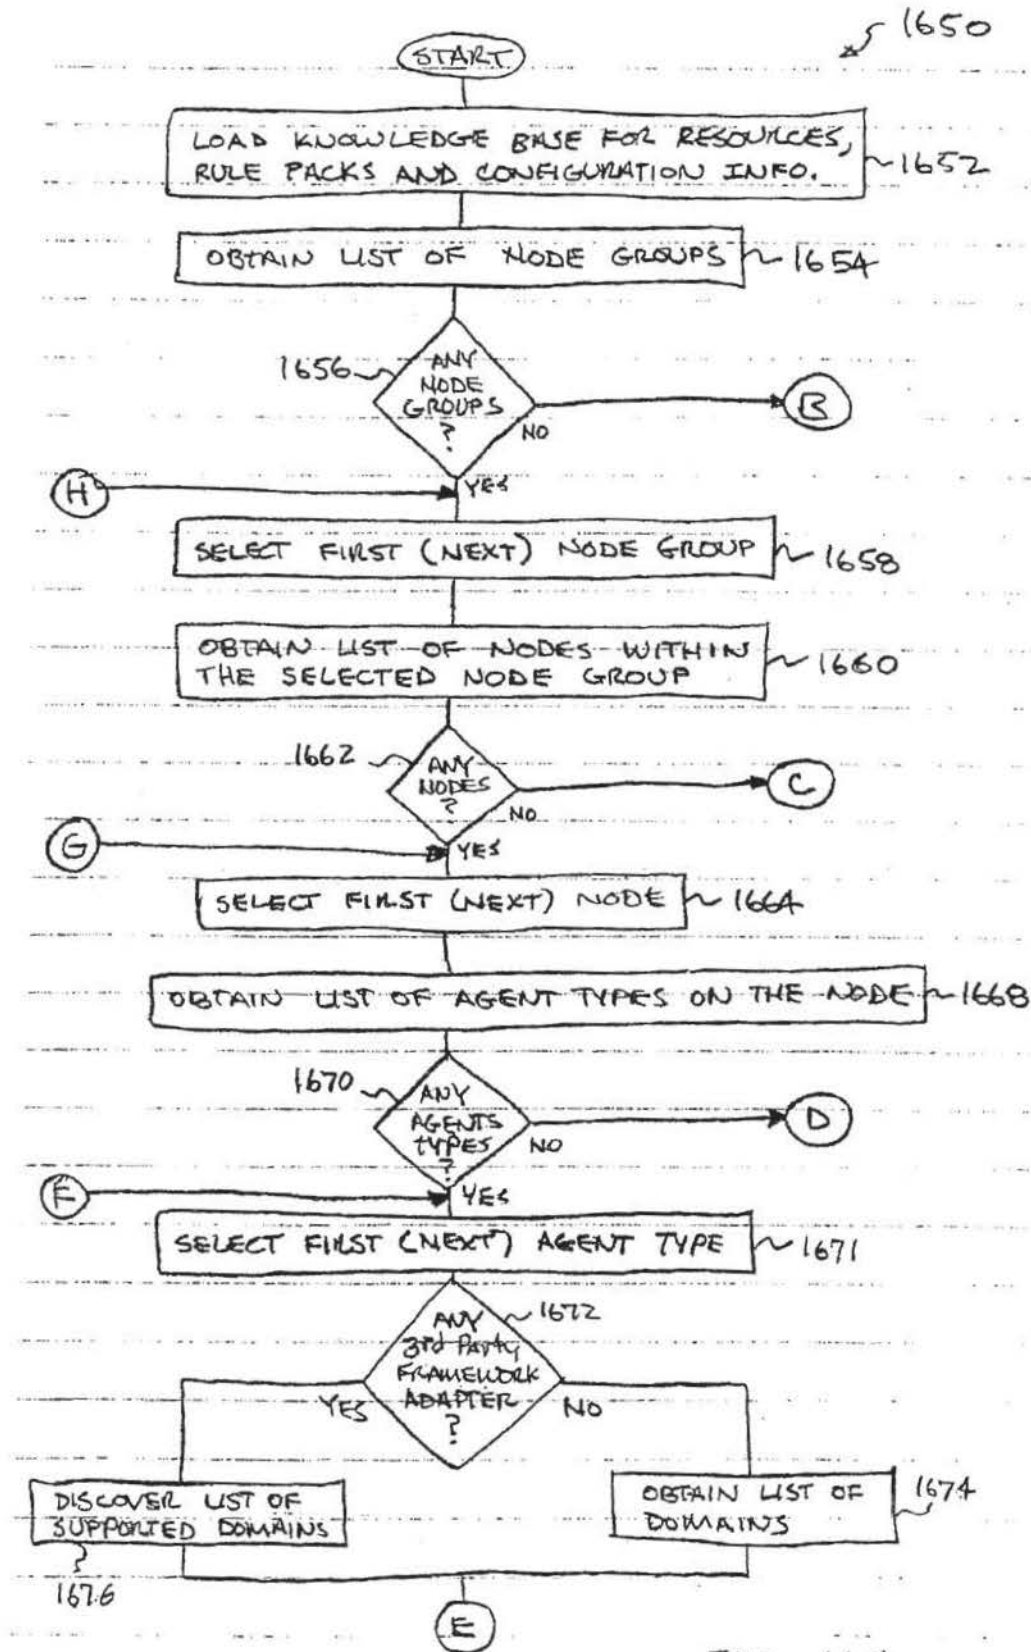 1650
START
LOAD KNOWLEDGE BASE FOR RESOURCES,
RULE PACKS AND CONFIGURATION INFO.
1652
OBTAIN LIST OF NODE GROUPS
1654
1656
ANY
NODE
GROUPS
?
NO
B
H
YES
SELECT FIRST (NEXT) NODE GROUP
1658
OBTAIN LIST OF NODES WITHIN
THE SELECTED NODE GROUP
1660
1662
ANY
NODES
?
NO
C
G
YES
SELECT FIRST (NEXT) NODE
1664
OBTAIN LIST OF AGENT TYPES ON THE NODE
1668
1670
ANY
AGENTS
TYPES
?
NO
D
F
YES
SELECT FIRST (NEXT) AGENT TYPE
1671
1672
ANY
3rd Party
FRAMEWORK
ADAPTER
?
YES
NO
DISCOVER LIST OF
SUPPORTED DOMAINS
1676
OBTAIN LIST OF
DOMAINS
1674
E